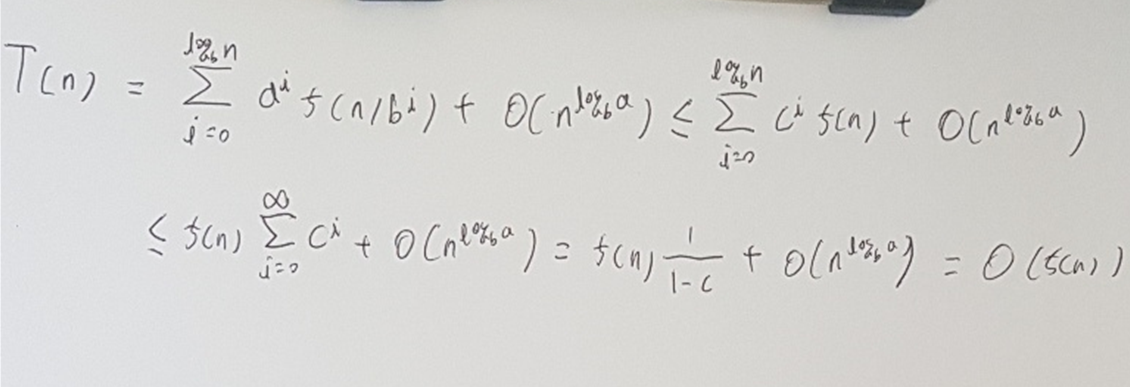 T(n) = \sum_{i=0}^{\log_b n} a^i f(n/b^i) + O(n^{\log_b a}) \leq \sum_{i=0}^{\log_b n} c^i f(n) + O(n^{\log_b a})
\leq f(n) \sum_{i=0}^{\infty} c^i + O(n^{\log_b a}) = f(n) \frac{1}{1-c} + O(n^{\log_b a}) = O(f(n))